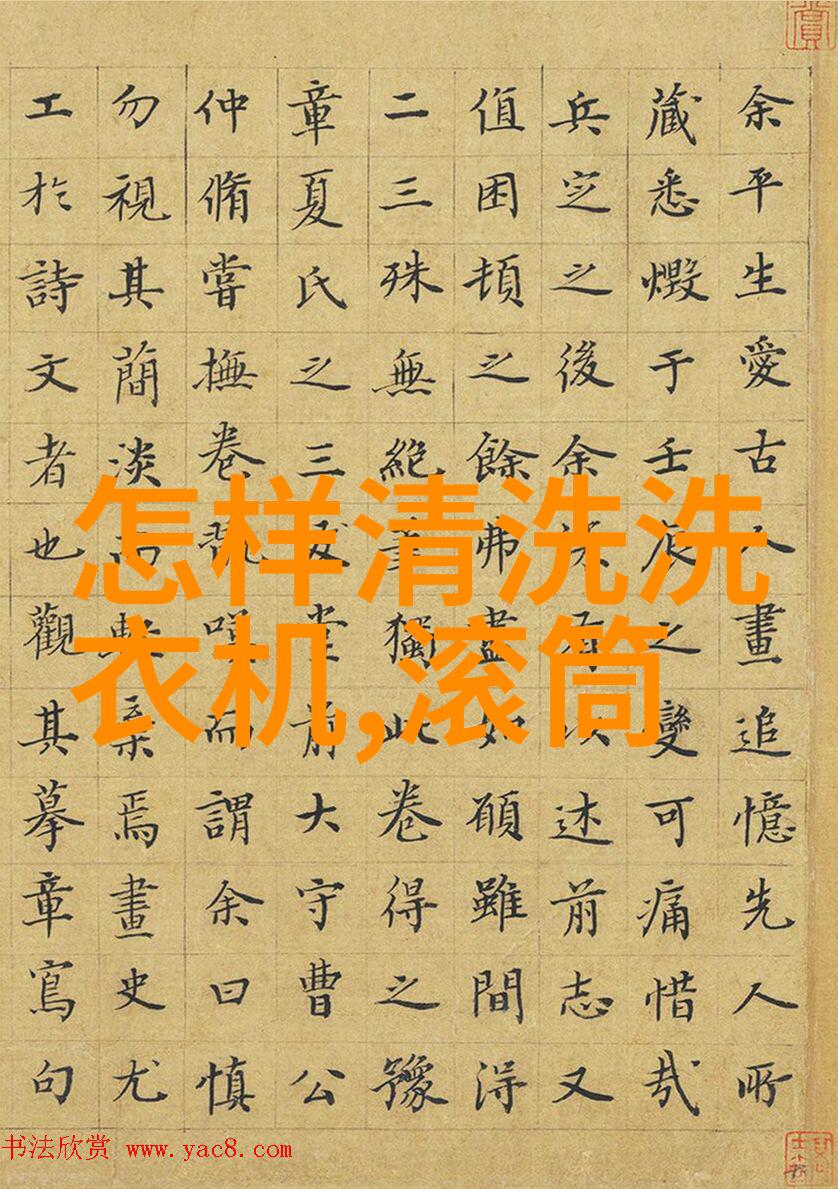 余平生愛古人畫追憶先人所
藏悉燬于壬辰之變可痛惜哉
兵定之後余有以述前志又
值困頓之餘弗盡如願雖間得
二三殊無絕筆獨此卷得之豫
章夏氏之三友堂前大守曹公
仲脩嘗撫卷嘆而謂余曰慎
勿視其簡淡而輕棄焉畫史尤
工於詩文者也觀其摹章寫句
怎样清洗洗
衣机,滚筒
书法欣赏 www.yac8.com